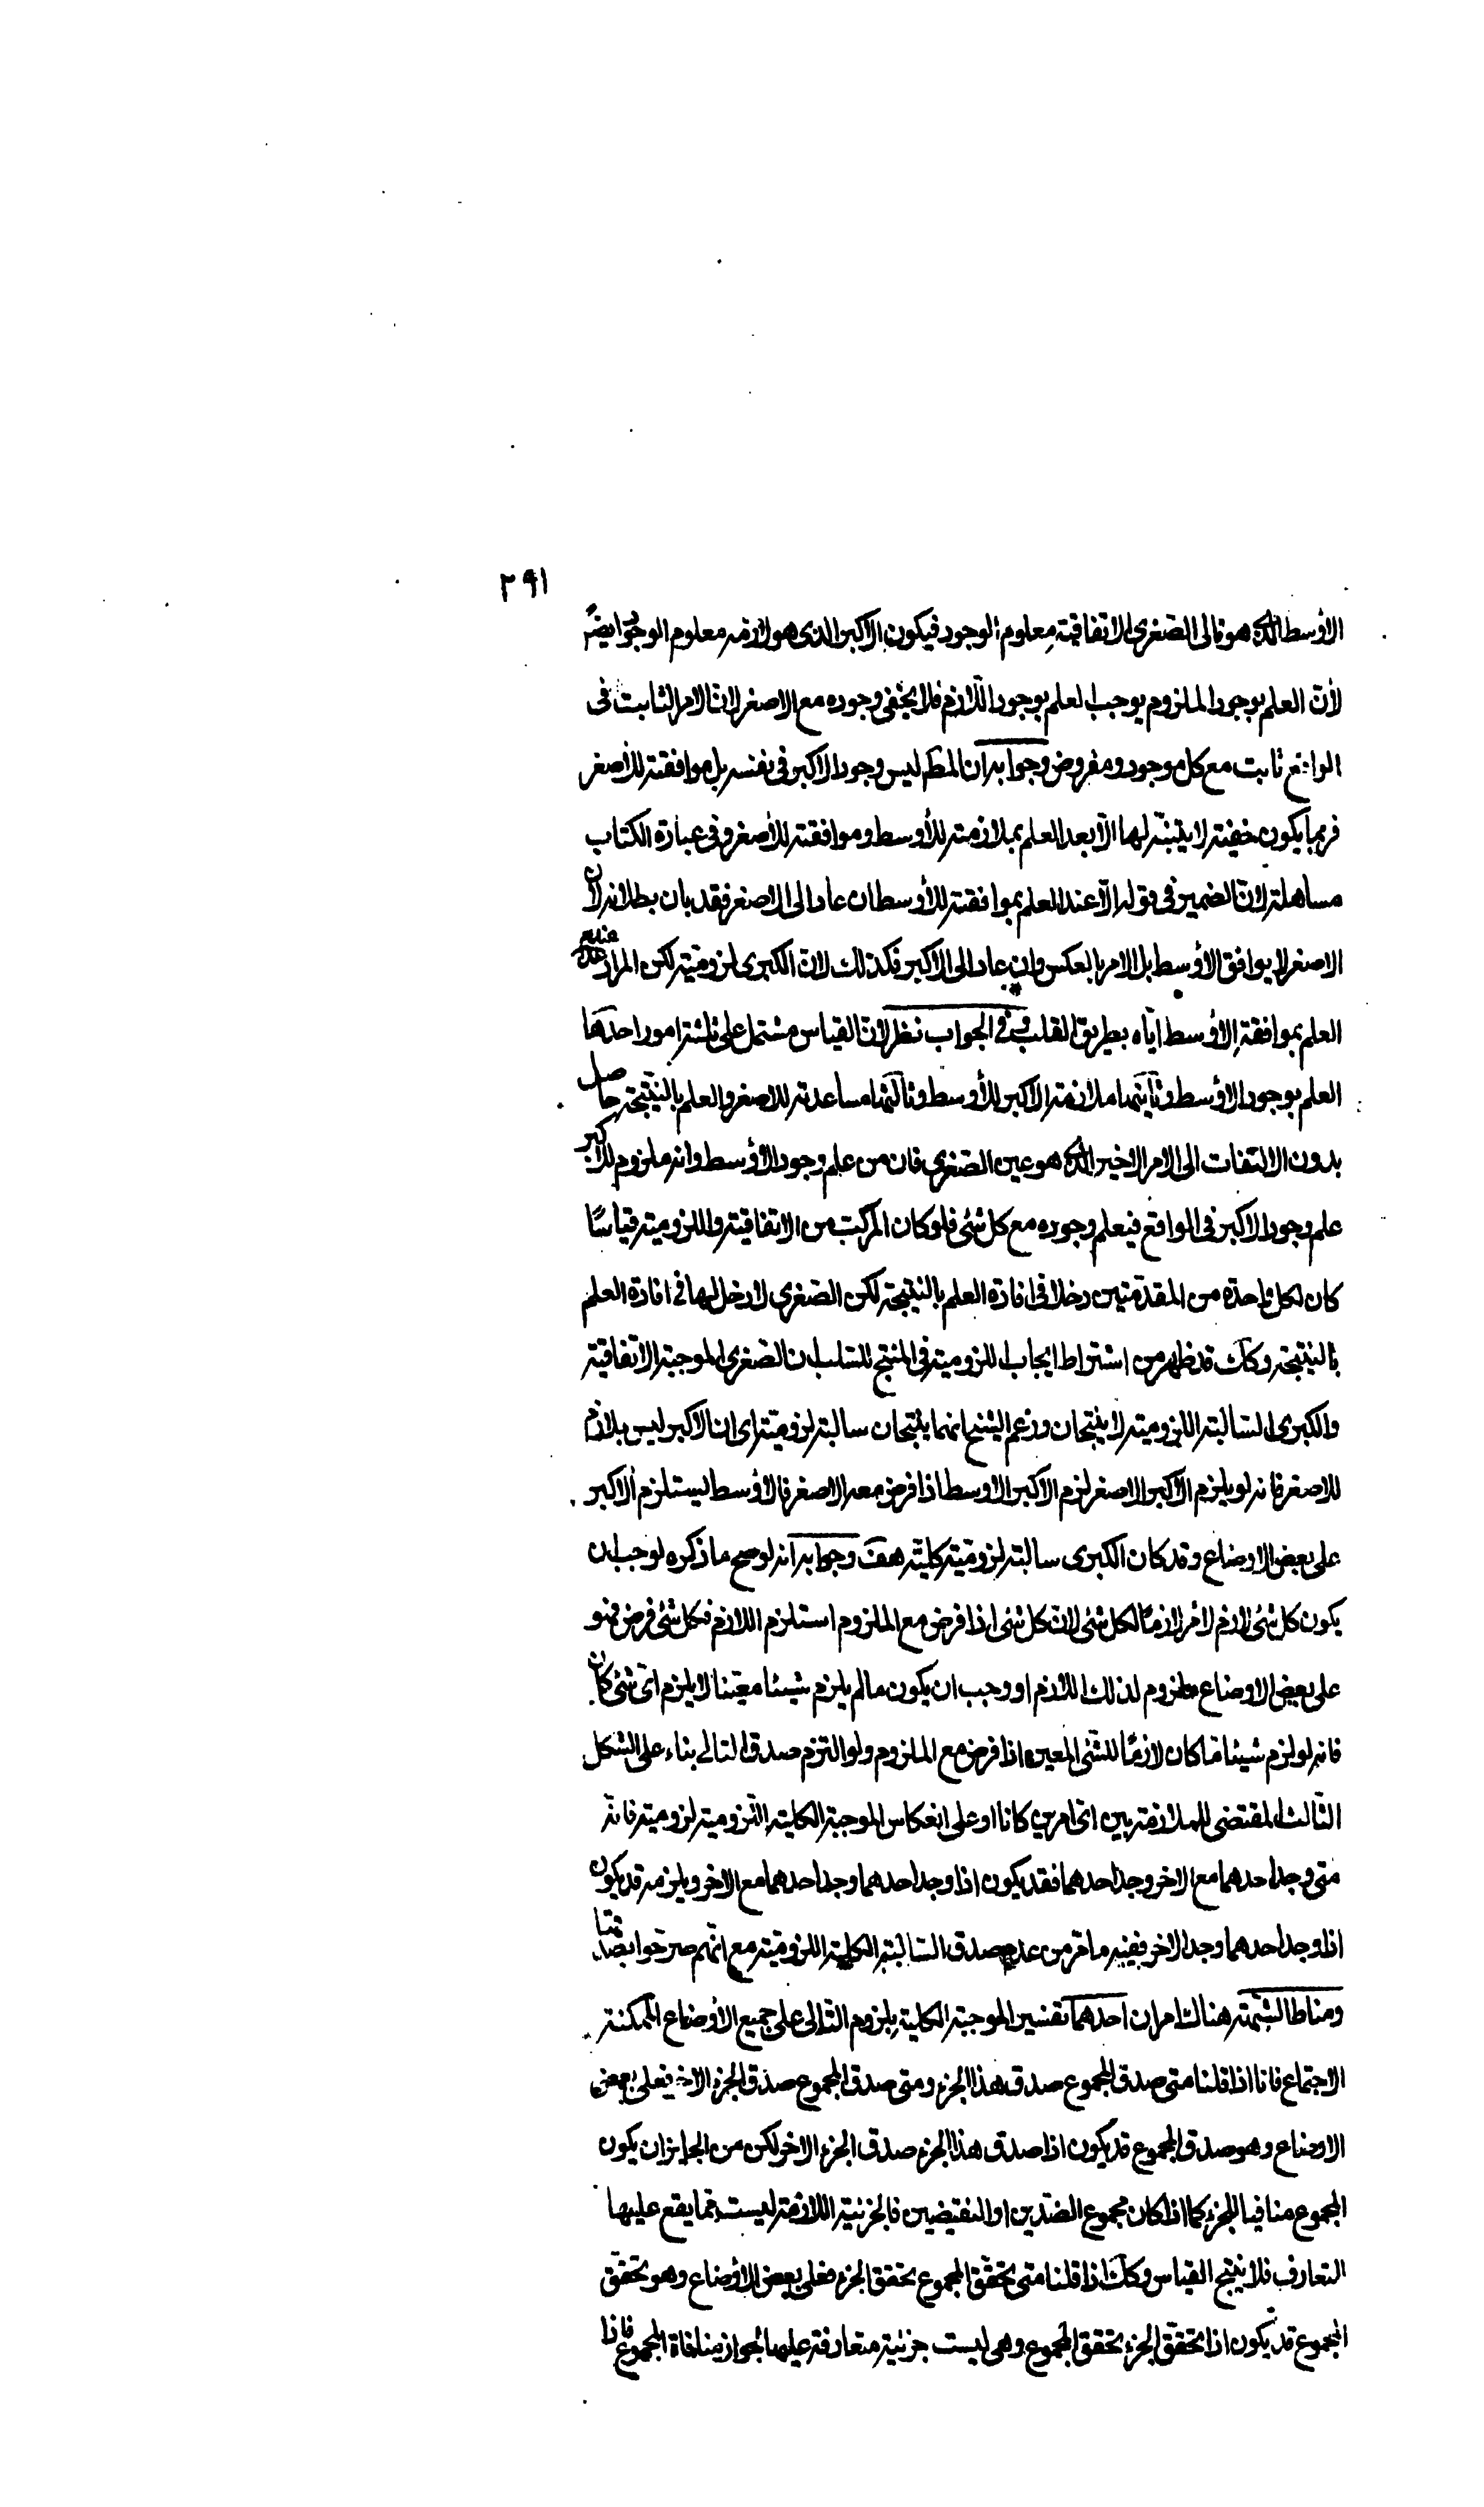 ٢٩١
الأوسط الذى هو تالى الصغرى الاتفاقية معلوم الوجود فيكون الأكبر الذى هو لازمه معلوم الوجود ايضًا
لأنّ العلم بوجود الملزوم يوجب العلم بوجود اللّازم فلا يخفى وجوده مع الاصغر لانّ الامر الثابت فى
الواقع ثابت مع كل موجود ومفروض وجوابه ان المط ليس وجود الاكبر فى نفسه بل موافقته للأصغر
فربما يكون خفيته لا يتنبّه لها الّا بعد العلم بملازمته للأوسط وموافقته للأصغر وفى عبارة الكتاب
مساهلة لانّ الضمير فى قوله الّا عند العلم بموافقته للأوسط ان عاد الى الاصغر فقد بان بطلانه لان
الاصغر لا يوافق الأوسط بل الامر بالعكس وان عاد الى الاكبر فكذلك لانّ الكبرى لزوميّة لكن المراد
العلم بموافقة الأوسط ايّاه بطريق القلب وفى الجواب نظر لانّ القياس مشتمل على ثلثة امور احدها
العلم بوجود الأوسط وثانيهما ملازمة الاكبر للأوسط وثالثها مساعدته للاصغر والعلم بالنتيجة حاصل
بدون الالتفات الى الامر الاخير الذى هو عين الصغرى فان من علم وجود الأوسط وانه ملزوم للاكبر
علم وجود الاكبر فى الواقع فيعلم وجوده مع كل شئ فلو كان المركّب من الاتفاقية واللزومية قياسًا
كان لكل واحدة من المقدّمتين دخلا فى افادة العلم بالنتيجة لكن الصغرى لا دخل لها فى افادة العلم
بالنتيجة وكك قد ظهر من اشتراط ايجاب اللزومية فى المنتج للسّلب ان الصّغرى الموجبة الاتّفاقية
والكبرى السّالبة اللزومية لا ينتجان وزعم الشيخ انهما ينتجان سالبة لزوميّة اى ان الاكبر ليس بلازم
للاصغر فانه لو يلزم الأكبر الاصغر لزم الاكبر الاوسط اذا فرض معه الاصغر فالأوسط ليستلزم الأكبر
على بعض الاوضاع وقد كان الكبرى سالبة لزوميّة كليّة هف وجوابه انه لو صح ما ذكره لوجب ان
يكون كل شئ لازم لأمر لازمًا لكل شئ لانّ كل شئ اذا فرض مع الملزوم استلزم اللازم فكل شئ فرض فهو
على بعض الاوضاع ملزوم لذلك اللازم او وجب ان يكون ما لم يلزم شيئا معيّنا لا يلزم اىّ شئ كان
فانه لو لزم شيئا ما كان لازمًا للشّئ المعين اذا فرض مع الملزوم ولو التزم صدق التالى بناء على الشكل
الثّالث المقتضى للملازمة بين اىّ امرين كانا او على انعكاس الموجبة الكلية اللّزومية لزومية فانّه
متى وجد احدهما مع الاخر وجد احدهما فقد يكون اذا وجد احدهما وجد احدهما مع الاخر ويلزمه قد يكون
اذا وجد احدهما وجد الاخر ففيه ما مرّ من عدم صدق السّالبة الكلية اللزوميّة مع انّهم صرّحوا بصدقها
ومناط الشّبهة هناك امران احدهما تفسير الموجبة الكلية بلزوم التّالى على جميع الأوضاع الممكنة
الاجتماع فانا اذا قلنا متى صدق المجموع صدق هذا الجزء ومتى صدق المجموع صدق الجزء الاخر فعلى بعض
الاوضاع وهو صدق المجموع قد يكون اذا صدق هذا الجزء صدق الجزء الاخر لكن من الجايز ان يكون
المجموع منافيا للجزء كما اذا كان مجموع الضدّين او النقيضين فالجزئية اللازمة ليست مما يقع عليها
التعارف فلا ينتج القياس وكك اذا قلنا متى تحقّق المجموع تحقق الجزء فعلى بعض الأوضاع وهو تحقّق
المجموع قد يكون اذا تحقّق الجزء تحقق المجموع وهى ليست جزئية متعارفة عليها لجواز منافاة المجموع فاذا